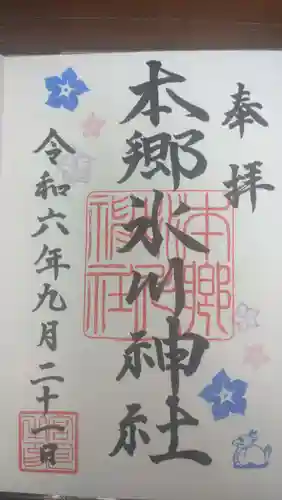 奉拝
本郷氷川神社
令和六年九月二十一日
本郷氷川神社